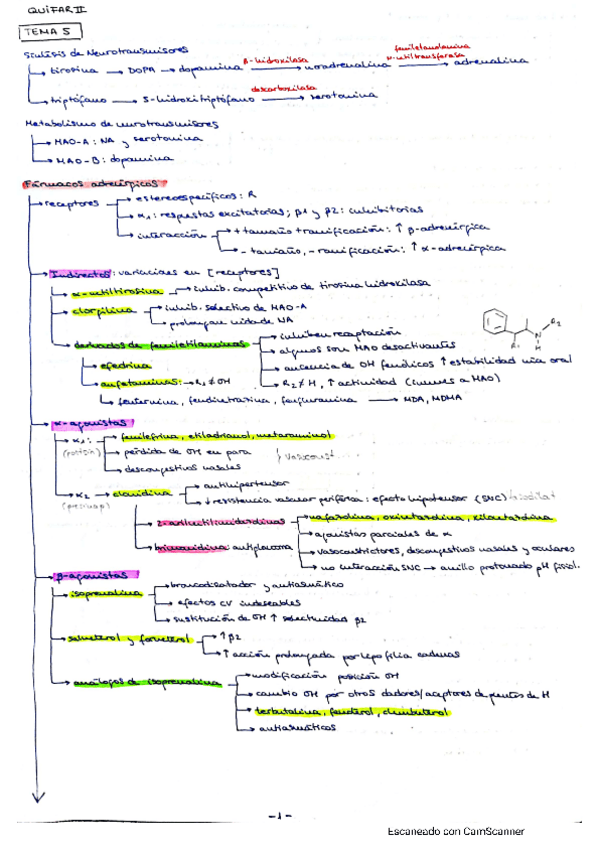 QUIFAR II
TEMA 5
Síntesis de Neurotransmisores
tirosina → DOPA → dopamina β-hidroxilasa → noradrenalina feniletanolamina N-metiltransferasa → adrenalina
triptófano → 5-hidroxitriptófano descarboxilasa → serotonina
Metabolismo de neurotransmisores
MAO-A: NA y serotonina
MAO-B: dopamina
Fármacos adrenérgicos
receptores → estereoespecíficos: R
α1: respuestas excitatorias; β1 y β2: inhibitorias
interacción → + tamaño + ramificación: ↑ β-adrenérgica
- tamaño, - ramificación: ↑ α-adrenérgica
Indirectos: variaciones en [receptores]
α-metiltirosina → inhib. competitivo de tirosina hidroxilasa
clorgilina → inhib. selectivo de MAO-A
prolongan vida de NA
derivados de feniletilaminas → inhiben recaptación
algunos son MAO desactivantes
ausencia de OH fenólicos ↑ estabilidad vía oral
R2 ≠ H, ↑ actividad (inmunes a MAO)
R1 N R2 H
efedrina
anfetaminas: → R1 ≠ OH
fentermina, fendimetrazina, fenfluramina → MDA, MDMA
α-agonistas
α1: (postsin) → fenilefrina, etiladrianol, metaraminol
pérdida de OH en para
descongestivos nasales
vasoconst
α2 (presinap) → clonidina → antihipertensor
↓ resistencia vascular periférica: efecto hipotensor (SNC) vasodilat
2-arilmetilimidazolinas → nafazolina, oximetazolina, xilometazolina
agonistas parciales de α
brimonidina antiglaucoma
vasoconstrictores, descongestivos nasales y oculares
no interacción SNC → anillo protonado pH fisiol.
β-agonistas
isoprenalina → broncodilatador y antiasmático
efectos CV indeseables
sustitución de OH ↑ selectividad β2
salmeterol y formoterol → ↑ β2
↑ acción prolongada por lipofilia cadenas
análogos de isoprenalina → modificación posición OH
cambio OH por otros dadores/aceptores de puentes de H
terbutalina, fenoterol, clenbuterol
antiasmáticos
- 1 -
Escaneado con CamScanner